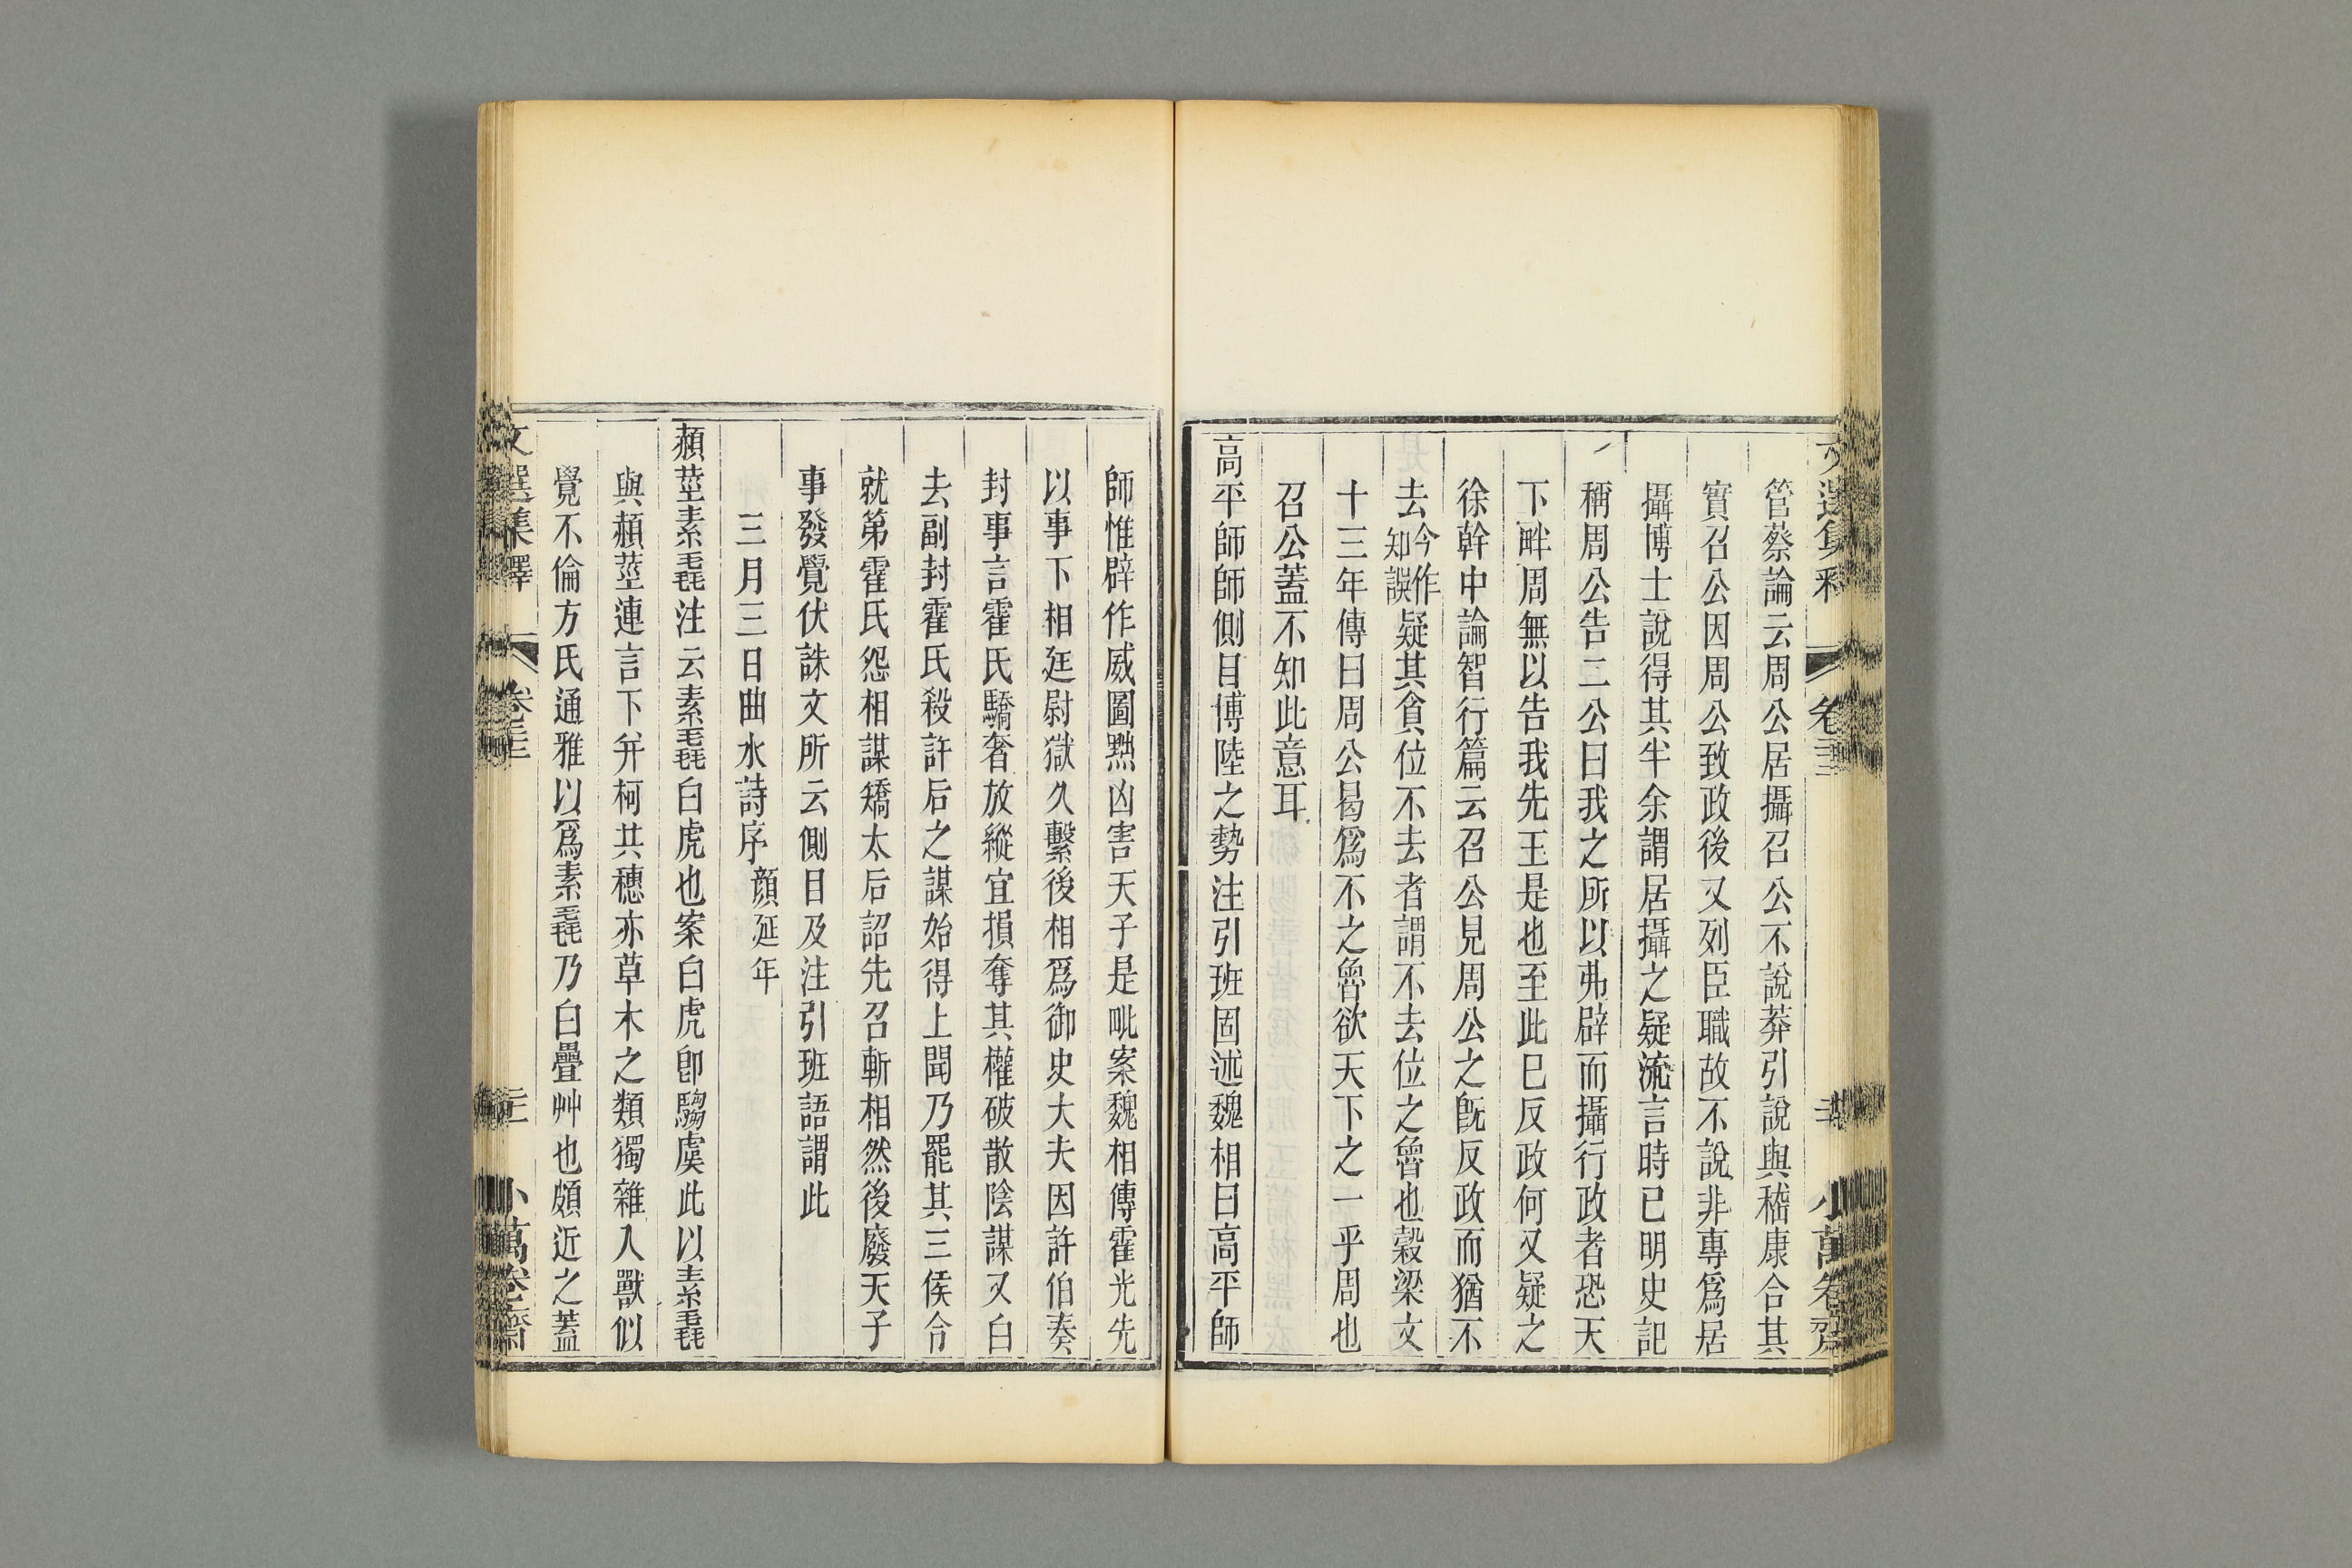 管蔡論云周公居攝召公不說莽引說與嵇康合其
實召公因周公致政後又列臣職故不說非專爲居
攝博士說得其半余謂居攝之疑流言時已明史記
稱周公告二公曰我之所以弗辟而攝行政者恐天
下畔周無以告我先王是也至此巳反政何又疑之
徐幹中論智行篇云召公見周公之旣反政而猶不
去今作知誤疑其貪位不去者謂不去位之魯也穀梁文
十三年傳曰周公曷爲不之魯欲天下之一乎周也
召公蓋不知此意耳
高平師師側目博陸之勢注引班固述魏相曰高平師
文選集釋 卷二十三 小萬卷齋
師惟辟作威圖黜凶害天子是毗案魏相傳霍光先
以事下相廷尉獄久繫後相爲御史大夫因許伯奏
封事言霍氏驕奢放縱宜損奪其權破散陰謀又白
去副封霍氏殺許后之謀始得上聞乃罷其三侯令
就第霍氏怨相謀矯太后詔先召斬相然後廢天子
事發覺伏誅文所云側目及注引班語謂此
三月三日曲水詩序 顔延年
赬莖素毳注云素毳白虎也案白虎卽騶虞此以素毳
與赬莖連言下幷柯共穗亦草木之類獨雜入獸似
覺不倫方氏通雅以爲素毳乃白疊艸也頗近之蓋
文選集釋 卷二十三 小萬卷齋